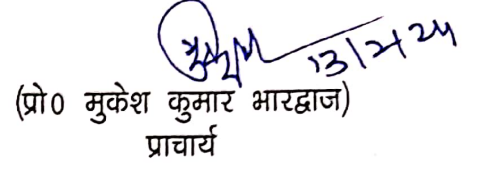 13/2/24
(प्रो0 मुकेश कुमार भारद्वाज)
प्राचार्य